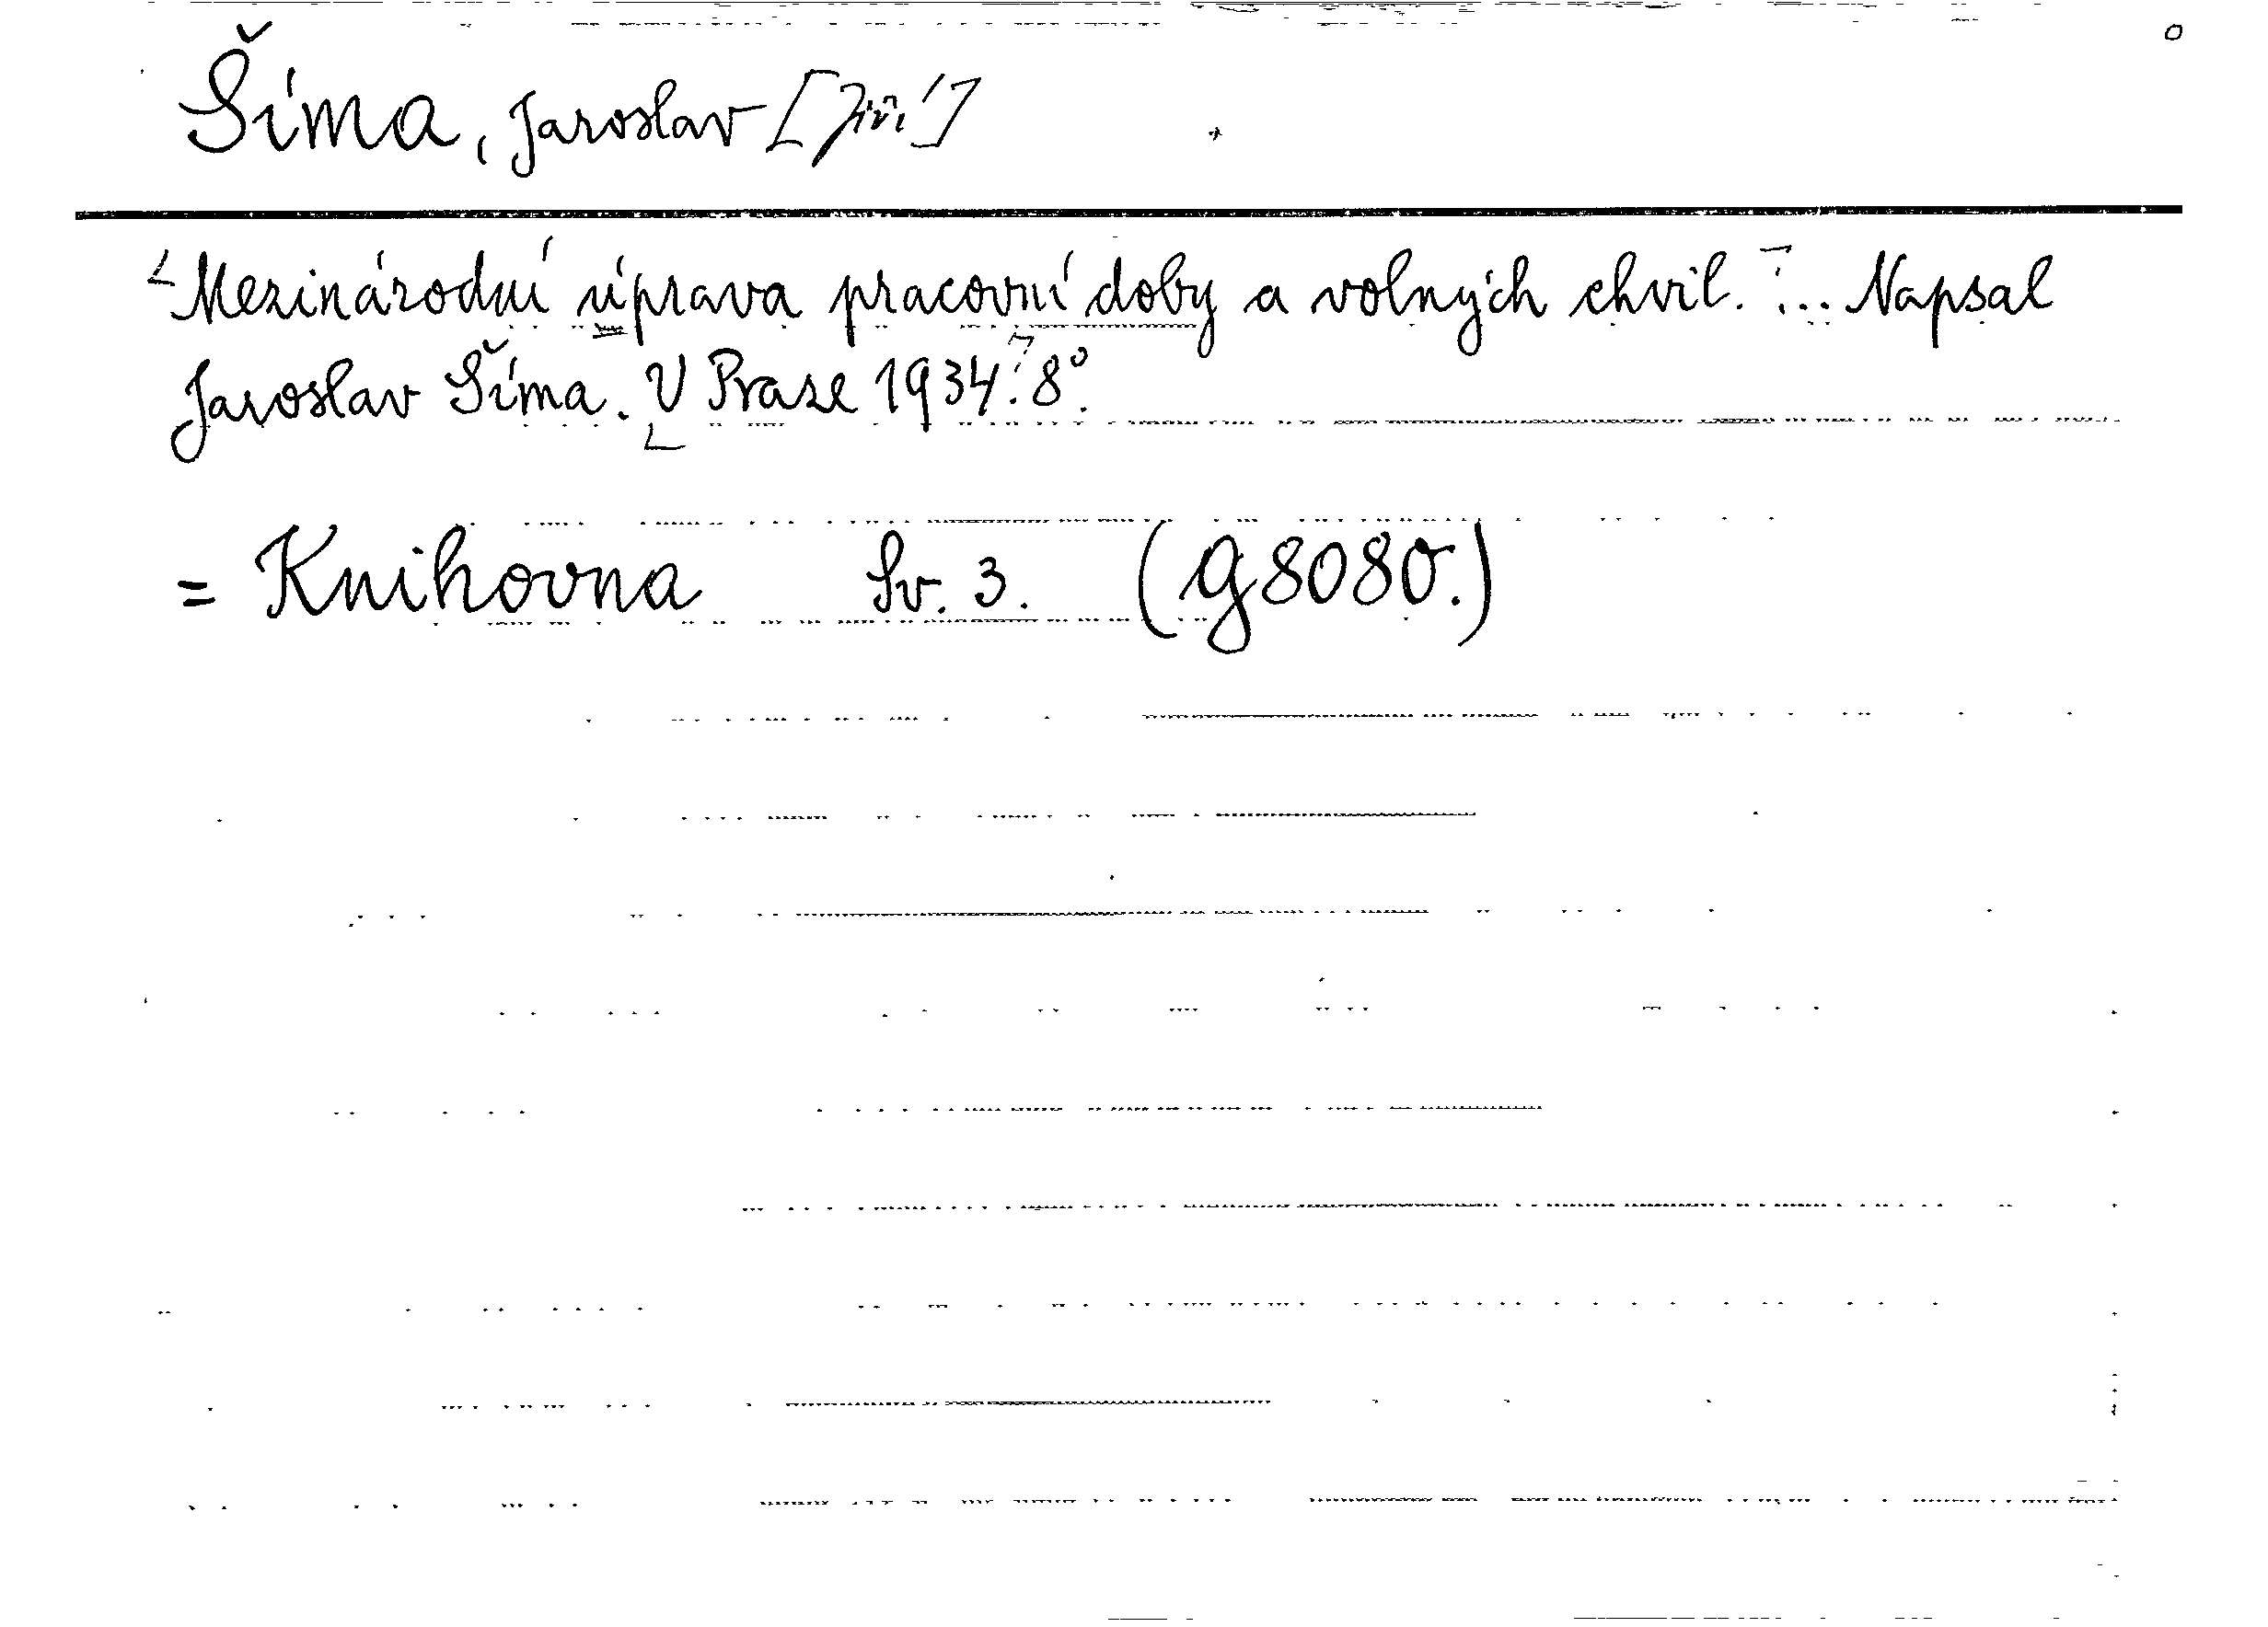 Šíma, Jaroslav [Jiří]
Mezinárodní úprava pracovní doby a volných chvil. ... Napsal
Jaroslav Šíma. V Praze 1934. 8°.
= Knihovna Sv. 3. (g8080.)